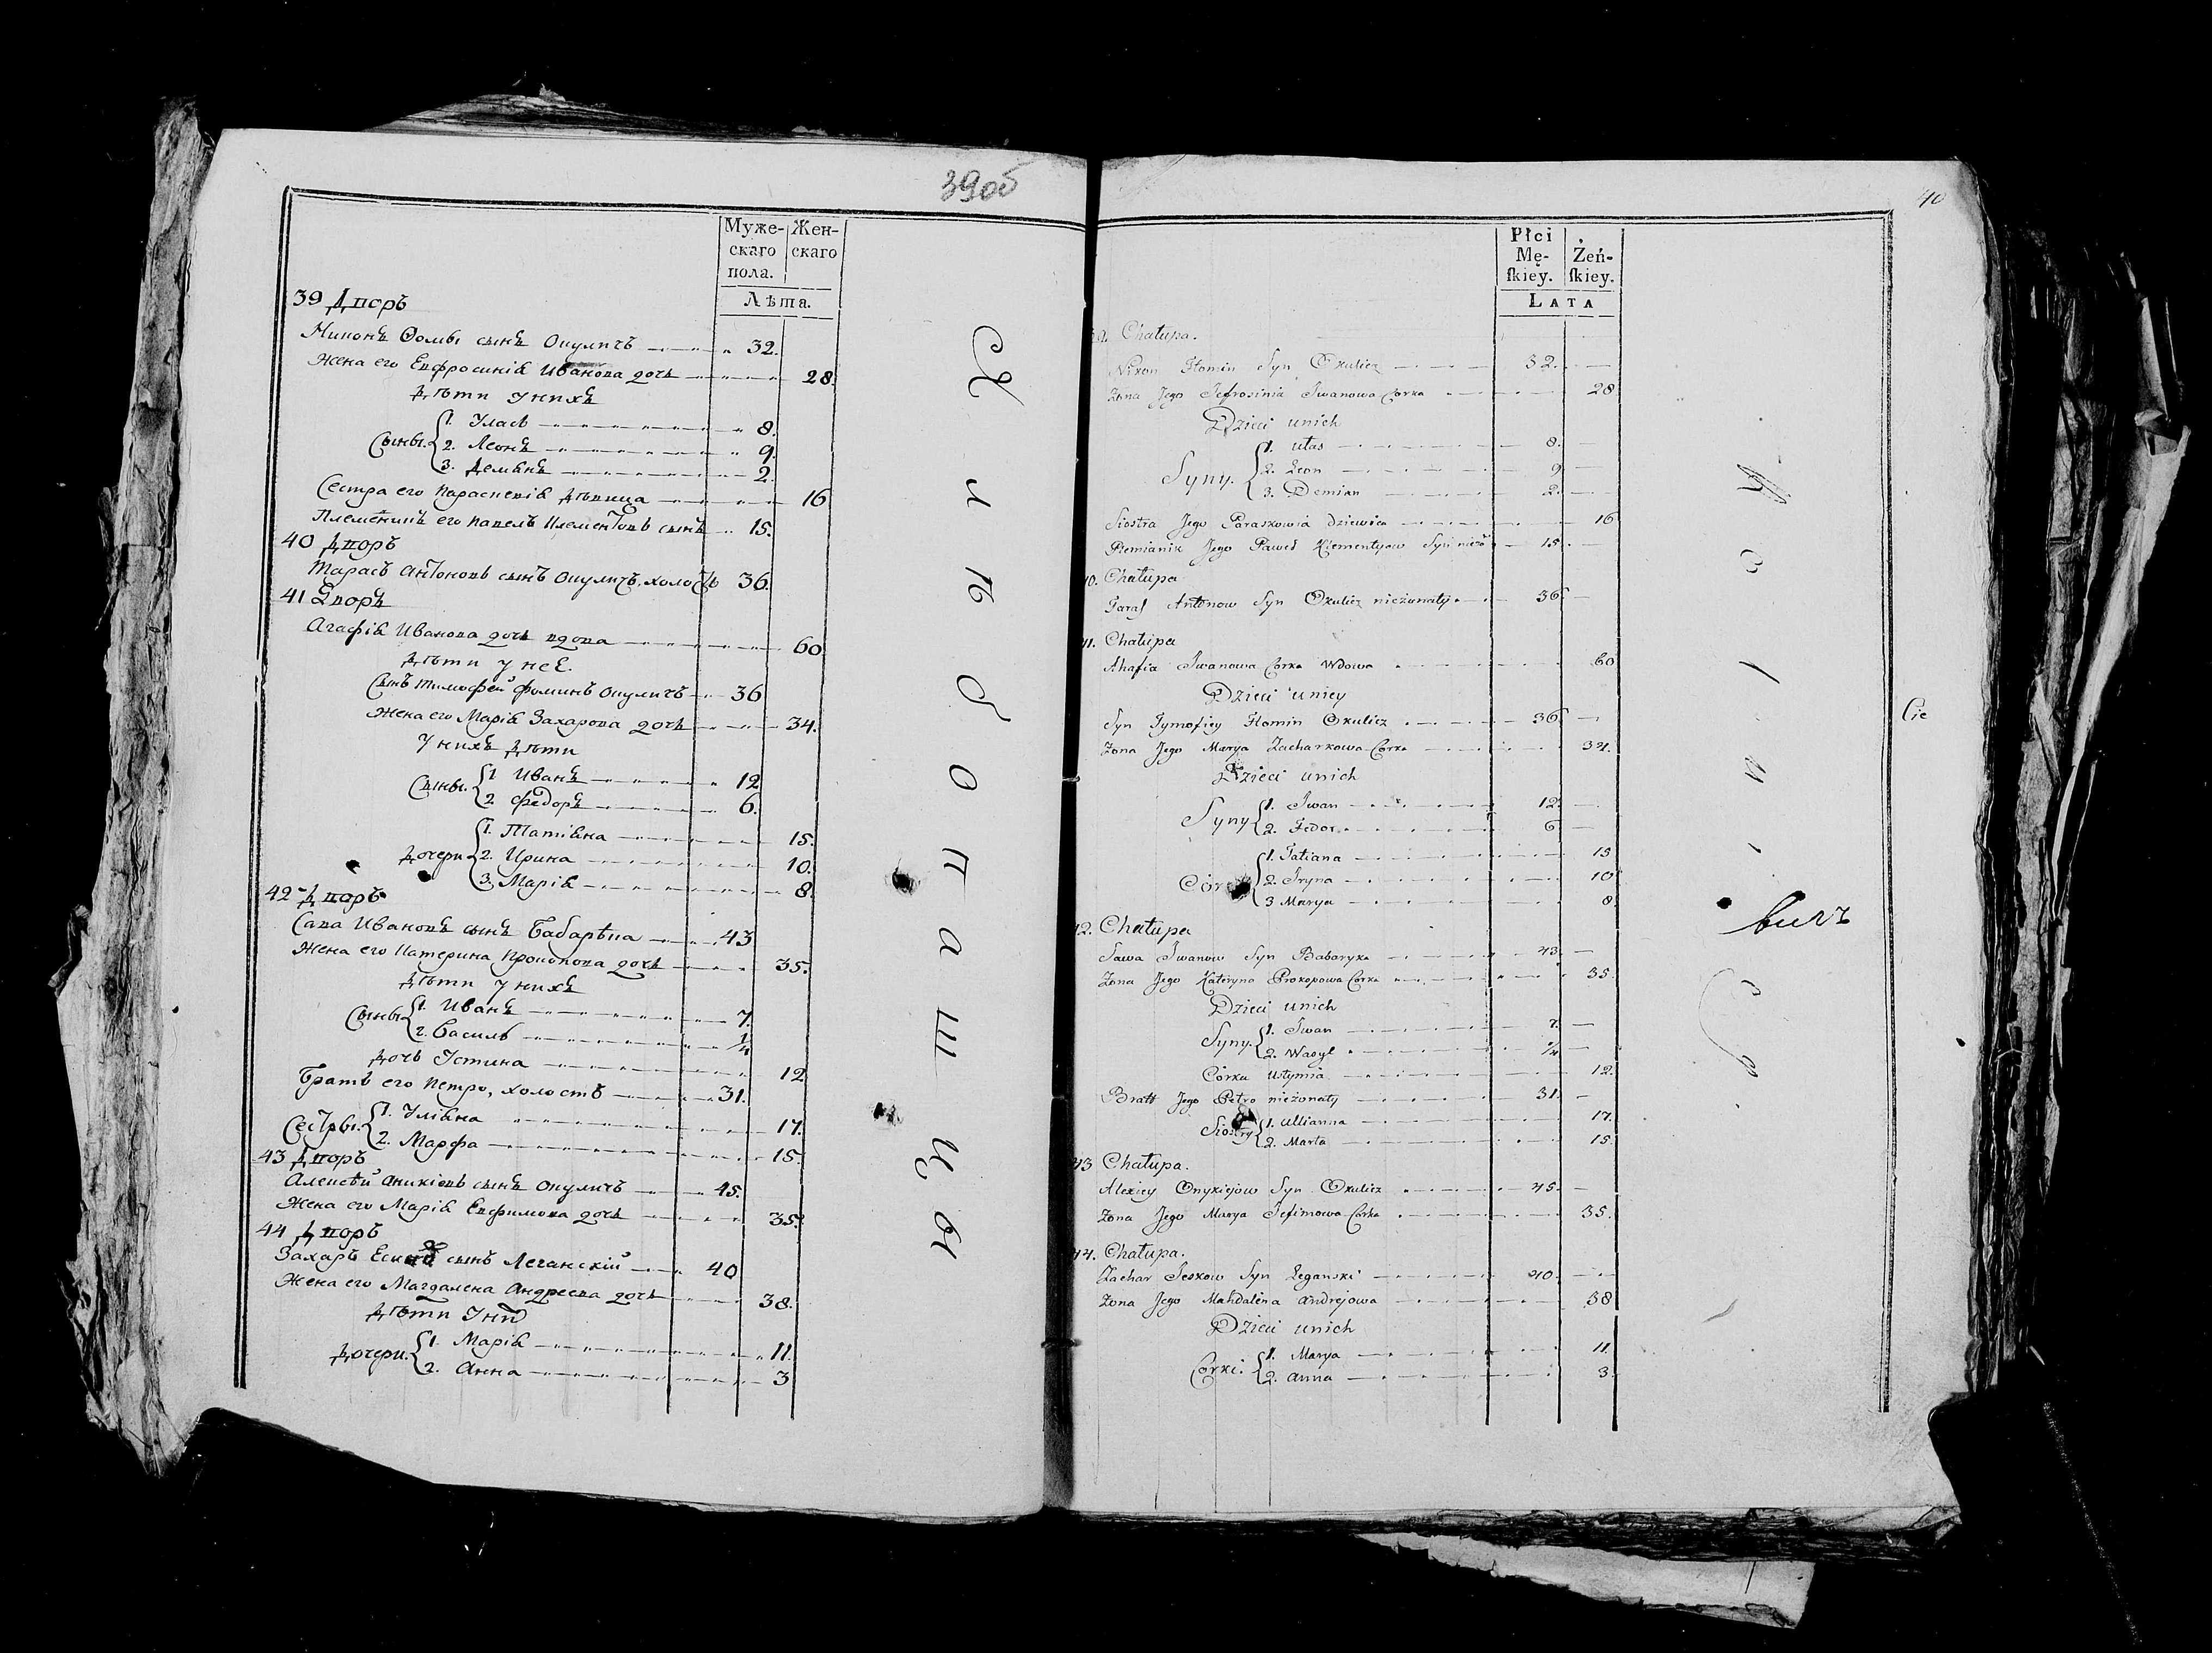 39об
Муже-
скаго
пола.
Жен-
скаго
Лѣта.
39 Дворъ
Никонъ Ѳомы сынъ Окуличъ 32.
Жена его Евфросинія Иванова дочь 28.
Дѣти у нихъ
Сыны. 1. Уласъ 8.
2. Леонъ 9.
3. Демянъ 2.
Сестра его Парасковія дѣвица 16
Племенникъ его Павелъ Клементовъ сынъ 15.
40 Дворъ
Тарасъ Антоновъ сынъ Окуличъ, холостъ 36.
41 Дворъ
Агафія Иванова дочь вдова 60
Дѣти у неё.
Сынъ Тимофей Фоминъ Окуличъ 36
Жена его Марія Захарова дочь 34.
У нихъ дѣти
Сыны. 1. Иванъ 12
2. Федоръ 6.
Дочери 1. Татіяна 15.
2. Ирина 10.
3. Марія 8.
42 Дворъ
Сава Ивановъ сынъ Бабарѣка 43
Жена его Катерина Прокопова дочь 35.
Дѣти у нихъ
Сыны 1. Иванъ 7.
2. Василь 1/4
Дочь Устина 12
Братъ его Петро, холостъ 31.
Сестры. 1. Уліяна 17.
2. Марфа 15.
43 Дворъ
Алексѣй Аникіевъ сынъ Окуличъ 45.
Жена его Марія Евфимова дочь 35.
44 Дворъ
Захаръ сынъ Леганскій 40
Жена его Магдалена Андреева дочь 38.
Дѣти у ни
Дочери. 1. Марія 11.
2. Анна 3
40
Płci
Mę-
ſkiey.
Żeń-
ſkiey.
LATA
9. Chałupa.
Nikon Homin Syn Okulicz 32.
Żona Jego Jefrosinia Jwanowa Corka 28
Dzieci unich
Syny. 1. Ułas 8.
2. Leon 9
3. Demian 2.
Siostra Jego Paraskowia Dziewica 16
Plemianik Jego Paweł Klementyow Syn 15.
40. Chałupa
Taras Antonow Syn Okulicz nieżonaty 36.
41. Chałupa
Ahafia Jwanowa Corka Wdowa 60
Dzieci uniey
Syn Tymofiey Homin Okulicz 36.
Żona Jego Marya Zacharkowa Corka 34.
Dzieci unich
Syny 1. Jwan 12.
2. Fedor 6
1. Tatiana 15
2. Jryna 10
3 Marya 8.
42. Chałupa
Sawa Jwanow Syn Baboryka 43
Żona Jego Kateryna Prokopowa Corka 35
Dzieci unich
Syny. 1. Jwan 7.
2. Wasyl 1/4
Córka Ustymia 12.
Bratt Jego Petro nieżonaty 31.
Siostry 1. Ullianna 17.
2. Marta 15.
43 Chałupa.
Alexiey Onykiejow Syn Okulicz 45.
Żona Jego Marya Jefimowa Corka 35.
44. Chałupa.
Zachar Jeskow Syn Leganski 40.
Żona Jego Mahdalena Andrejowa 38
Dzieci unich
Corki. 1. Marya 11.
2. Anna 3.
вичъ
Cie